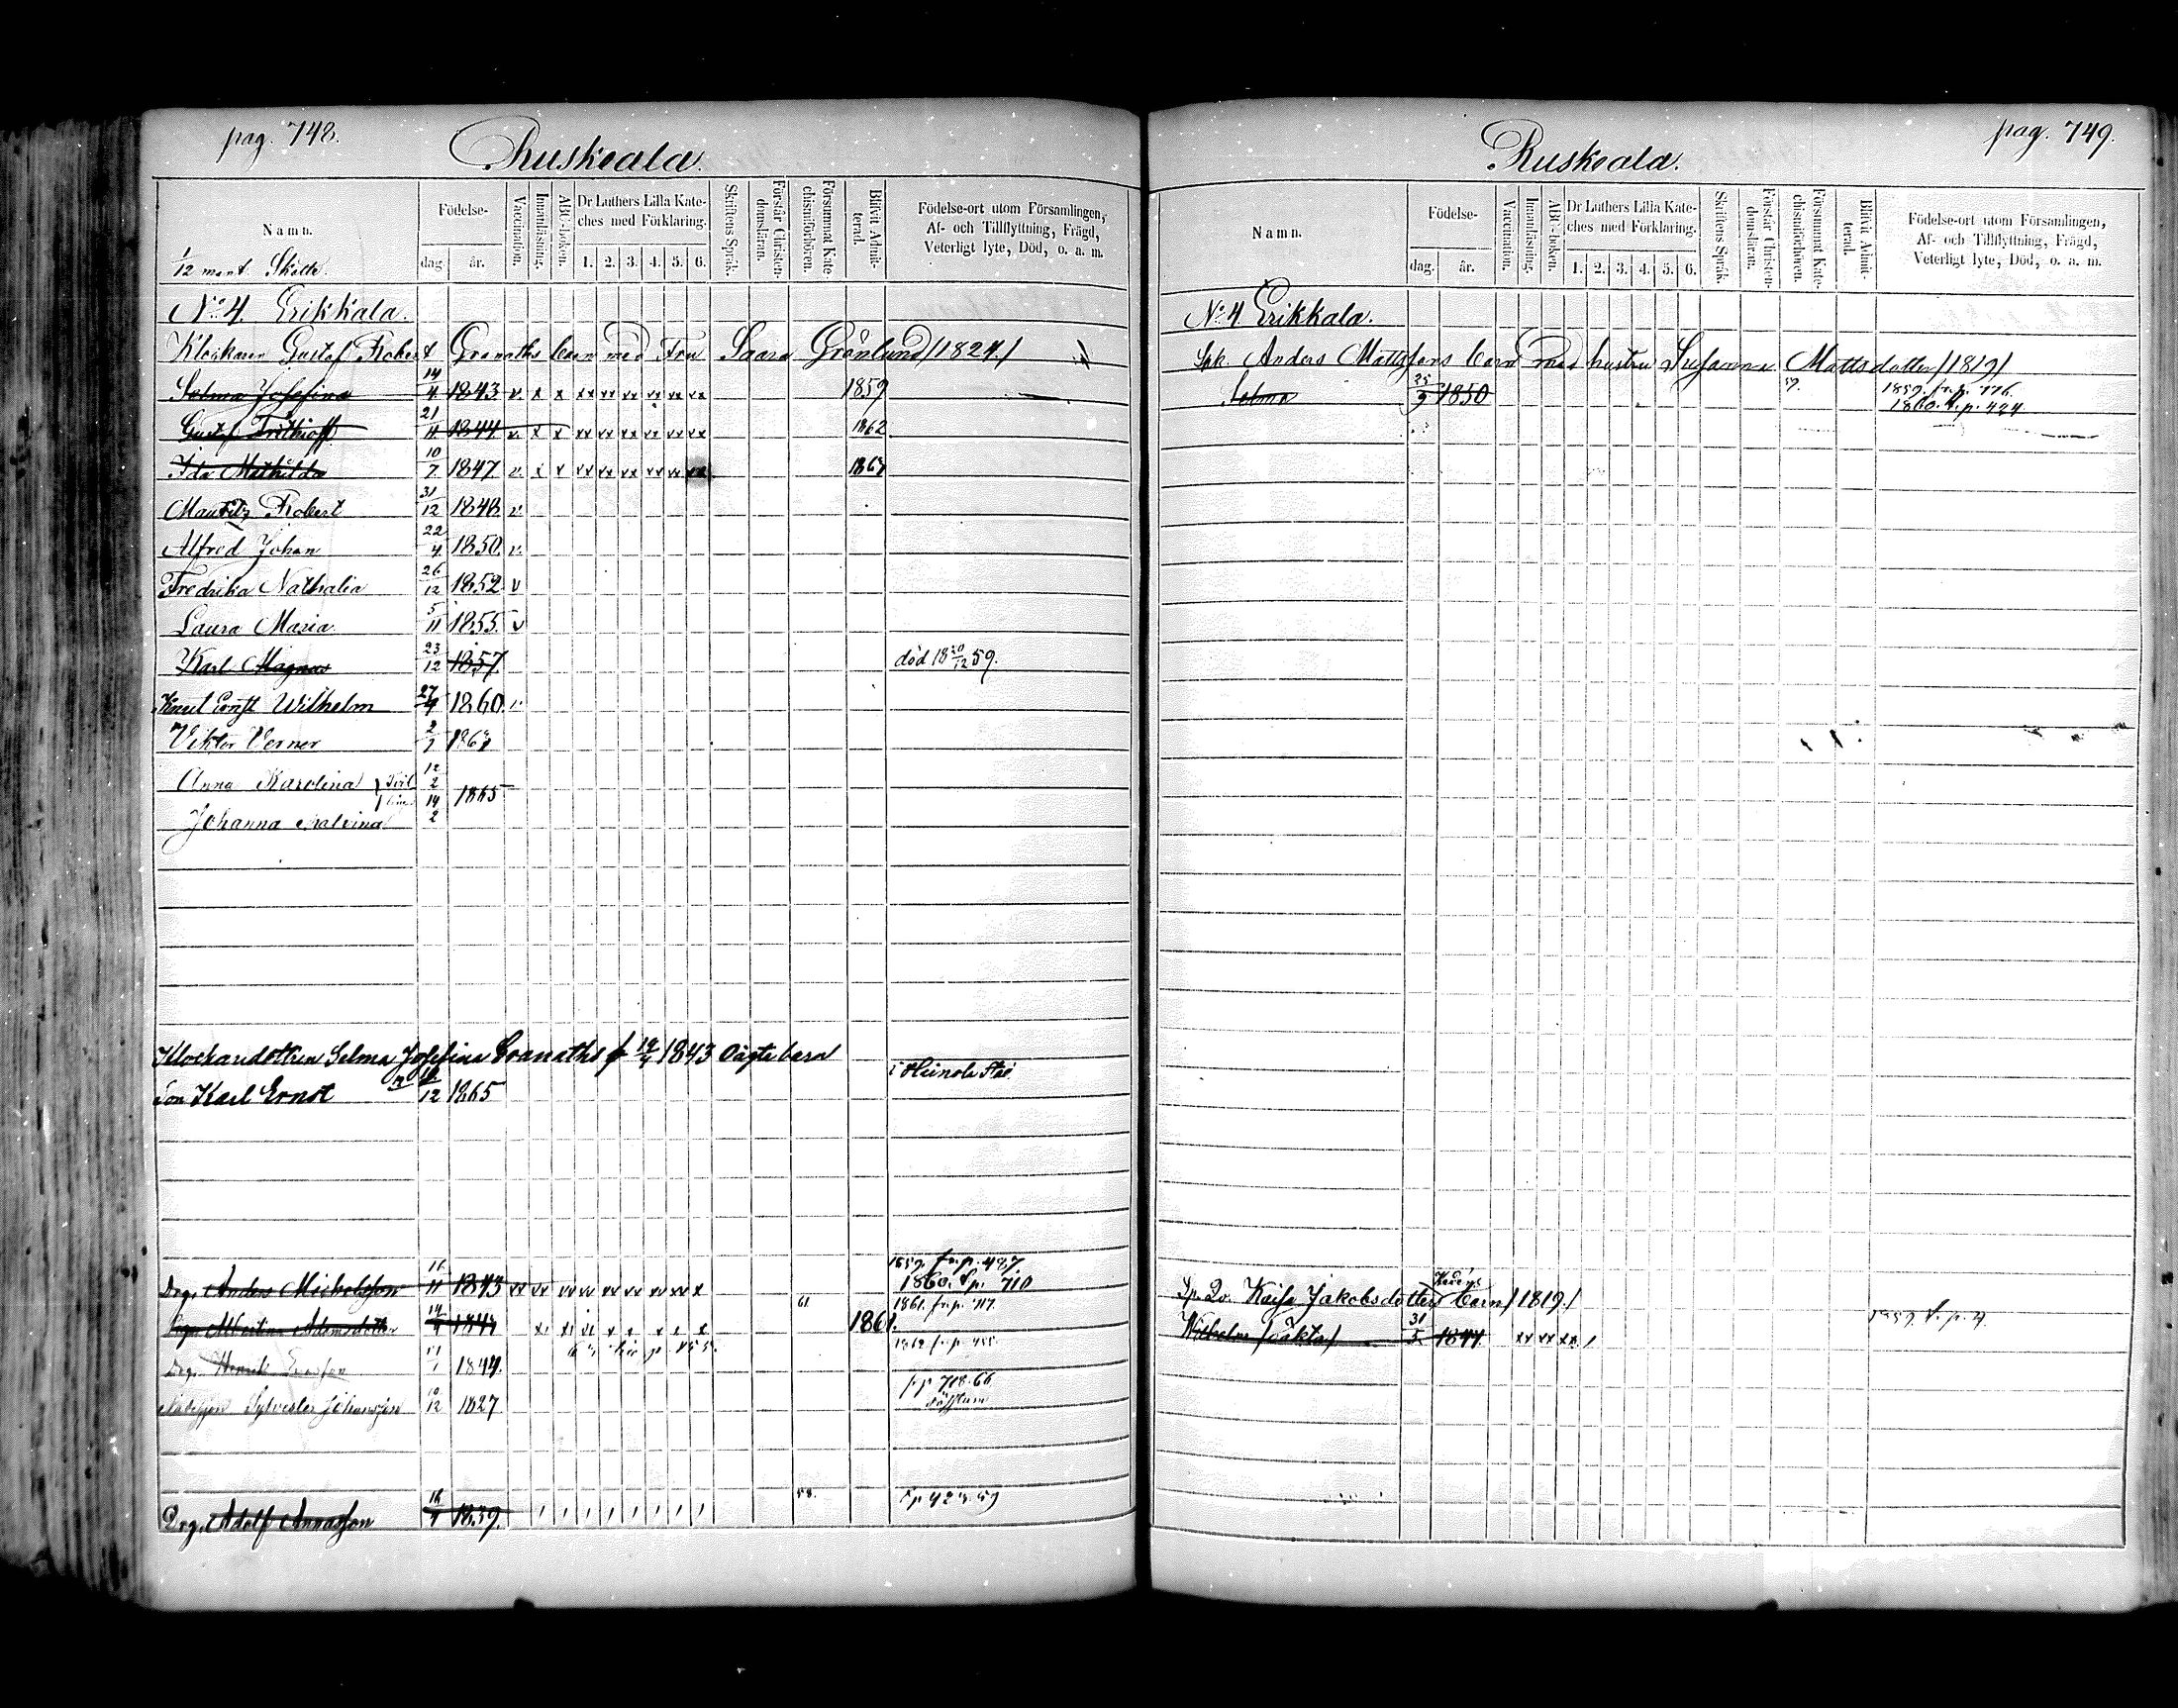 pag. 748.
Ruskeala.
Namn.
Födelse-
dag.
år.
Vaccination.
Innanläsning.
ABC-boken.
Dr Luthers Lilla Kate-
ches med Förklaring.
1. 2. 3. 4. 5. 6.
Skriftens Språk.
Förstår Christen-
domsläran.
Försummat Kate-
chismiförhören.
Blifvit Admit-
terad.
Födelse-ort utom Församlingen,
Af- och Tillflyttning, Frägd,
Veterligt lyte, Död, o. a. m.
1/12 mant. Skatte.
No 4. Erikkala.
Klockaren Gustaf Robert Granaths barn med Fru Saara Grönlund /1824./
Selma Josefina 14/4 1843 v. x x xx xx xx xx xx xx 1859
Gustaf Frithioff 21/11 1844 v. x x xx xx xx xx xx xx 1862
Ida Mathilda 10/7 1847 v. x x xx xx xx xx xx xx
Mauritz Robert 31/12 1848 v.
Alfred Johan 22/4 1850. v.
Fredrika Nathalia 26/12 1852. v
Laura Maria. 5/11 1855. v
Karl Magnus 23/12 1857 död 18 20/12 59.
Karl Ernst Wilhelm 27/4 1860. v
Viktor Verner 2/1
Anna Karolina 12/2 1865
Johanna Malvina 14/2
Klockaredottren Selma Josefina Granaths f 14/4 1843 oägta barn
i Heinola Stad
Son Karl Ernst 12 1865
1859. fr. p. 487.
Drg. Anders Michelsson 16/11 1843 xx xx xx xx xx xx xx xx x 1860. t. p. 710
61. 1861. fr. p. 717.
Albertina Adamsdotter 1861.
Drg. Henrik 1844.
Sylvester Johansson 10/12 1827
58.
Drg. Adolf Annasson 16/4 1839.
pag. 749.
Ruskeala.
Namn.
Födelse-
dag.
år.
Vaccination.
Innanläsning.
ABC-boken.
Dr Luthers Lilla Kate-
ches med Förklaring.
1. 2. 3. 4. 5. 6.
Skriftens Språk.
Förstår Christen-
domsläran.
Försummat Kate-
chismiförhören.
Blifvit Admit-
terad.
Födelse-ort utom Församlingen,
Af- och Tillflyttning, Frägd,
Veterligt lyte, Död, o. a. m.
No 4 Erikkala.
Spk. Anders Mattssons barn med hustru Susanna Mattsdotter /1819/
Selma 25/9 1850 1859. fr. p. 776.
1860. t. p. 424
Kaisa Jakobsdotters barn /1819./
Wilhelm /oäkta/ 31/5. 1844. xx xx xx /